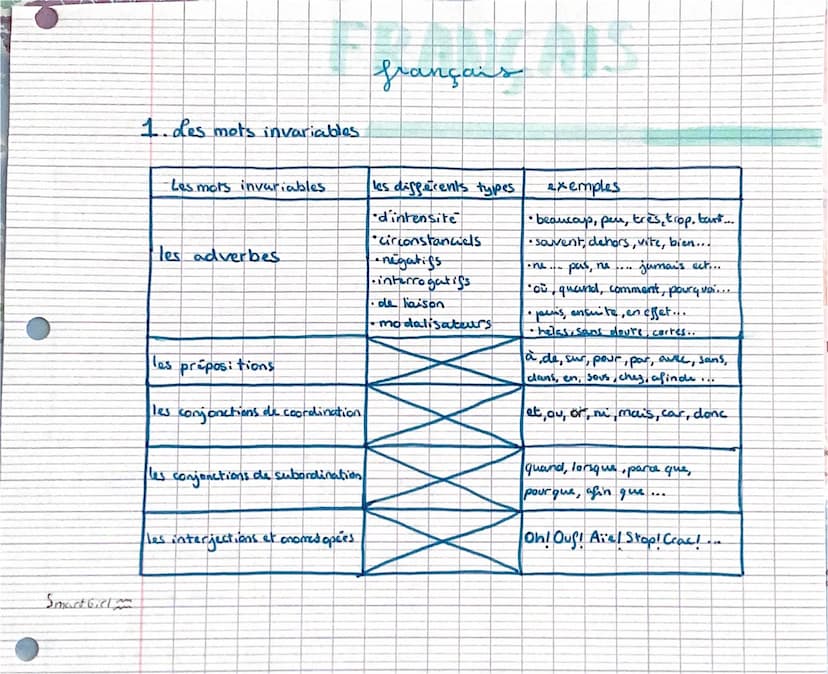 FRANÇAIS
français
1. Les mots invariables
Les mots invariables les différents types exemples
les adverbes
•d'intensité
•circonstanciels
•négatifs
•interrogatifs
•de liaison
•modalisateurs
•beaucoup, peu, très, trop, tant...
•souvent, dehors, vite, bien...
•ne ... pas, ne .... jamais ect...
•où, quand, comment, pourquoi...
•puis, ensuite, en effet...
•hélas, sans doute, certes..
les prépositions
à, de, sur, pour, par, avec, sans,
dans, en, sous, chez, afin de ...
les conjonctions de coordination
et, ou, or, ni, mais, car, donc
les conjonctions de subordination
quand, lorsque, parce que,
pour que, afin que ...
les interjections et onomatopées
Oh! Ouf! Aïe! Stop! Crac! ...
SmartGirl